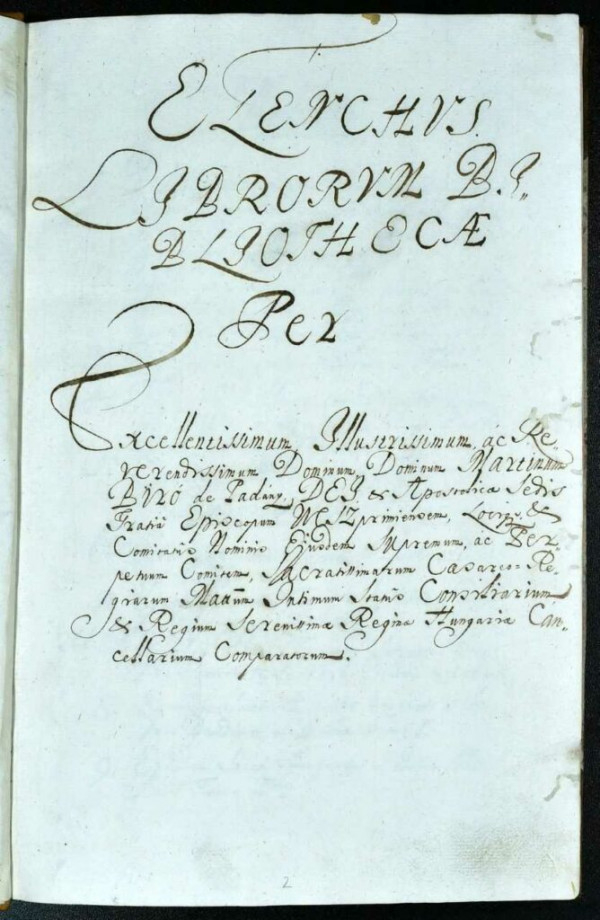 ELENCHVS
LIBRORVM BI„
BLIOTHECÆ
Per
Excellentissimum, Illustrissimum, ac Re„
verendissimum Dominum Dominum Martinum
BIRO de Padány, DEI & Apostolicæ Sedis
Gratiâ Episcopum WESZprimiensem, &
Comitatus Nominis Ejusdem Supremum, ac Per„
petuum Comitem, Sacratissimarum Cæsareo-Re„
giarum Mattum Intimum Status Consiliarium
& Regium Serenissimæ Reginæ Hungariæ Can„
cellarium Comparatorum.
2